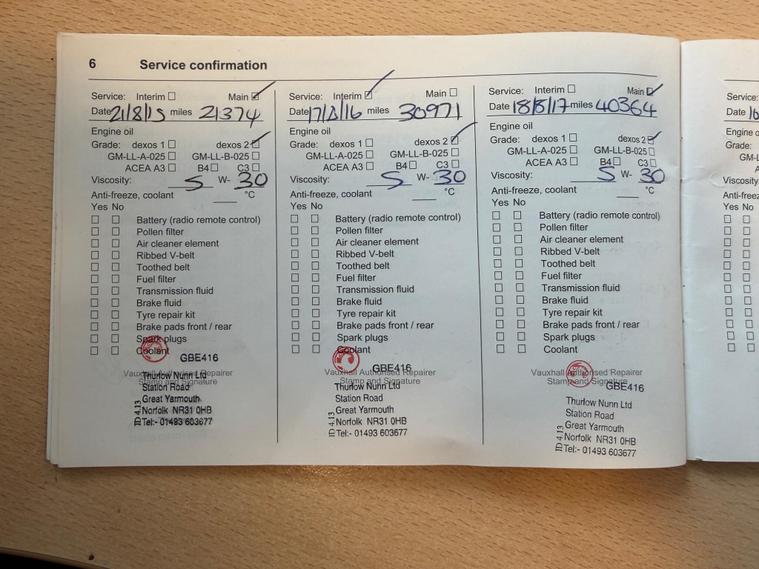 6 Service confirmation
Service: Interim Main
Date 21/8/15 miles 21374
Engine oil
Grade: dexos 1 dexos 2
GM-LL-A-025 GM-LL-B-025
ACEA A3 B4 C3
Viscosity: 5 W- 30
Anti-freeze, coolant °C
Yes No
Battery (radio remote control)
Pollen filter
Air cleaner element
Ribbed V-belt
Toothed belt
Fuel filter
Transmission fluid
Brake fluid
Tyre repair kit
Brake pads front / rear
Spark plugs
Coolant
GBE416
Vauxhall Authorised Repairer
Stamp and Signature
Thurlow Nunn Ltd
Station Road
Great Yarmouth
Norfolk NR31 0HB
Tel:- 01493 603677
ID 4.13
Service: Interim Main
Date 17/8/16 miles 30971
Engine oil
Grade: dexos 1 dexos 2
GM-LL-A-025 GM-LL-B-025
ACEA A3 B4 C3
Viscosity: 5 W- 30
Anti-freeze, coolant °C
Yes No
Battery (radio remote control)
Pollen filter
Air cleaner element
Ribbed V-belt
Toothed belt
Fuel filter
Transmission fluid
Brake fluid
Tyre repair kit
Brake pads front / rear
Spark plugs
Coolant
GBE416
Vauxhall Authorised Repairer
Stamp and Signature
Thurlow Nunn Ltd
Station Road
Great Yarmouth
Norfolk NR31 0HB
Tel:- 01493 603677
ID 4.13
Service: Interim Main
Date 18/8/17 miles 40364
Engine oil
Grade: dexos 1 dexos 2
GM-LL-A-025 GM-LL-B-025
ACEA A3 B4 C3
Viscosity: 5 W- 30
Anti-freeze, coolant °C
Yes No
Battery (radio remote control)
Pollen filter
Air cleaner element
Ribbed V-belt
Toothed belt
Fuel filter
Transmission fluid
Brake fluid
Tyre repair kit
Brake pads front / rear
Spark plugs
Coolant
Vauxhall Authorised Repairer
Stamp and Signature
GBE416
Thurlow Nunn Ltd
Station Road
Great Yarmouth
Norfolk NR31 0HB
Tel:- 01493 603677
ID 4.13
Service:
Date
Engine
Grade:
Viscosity
Anti-freeze
Yes No